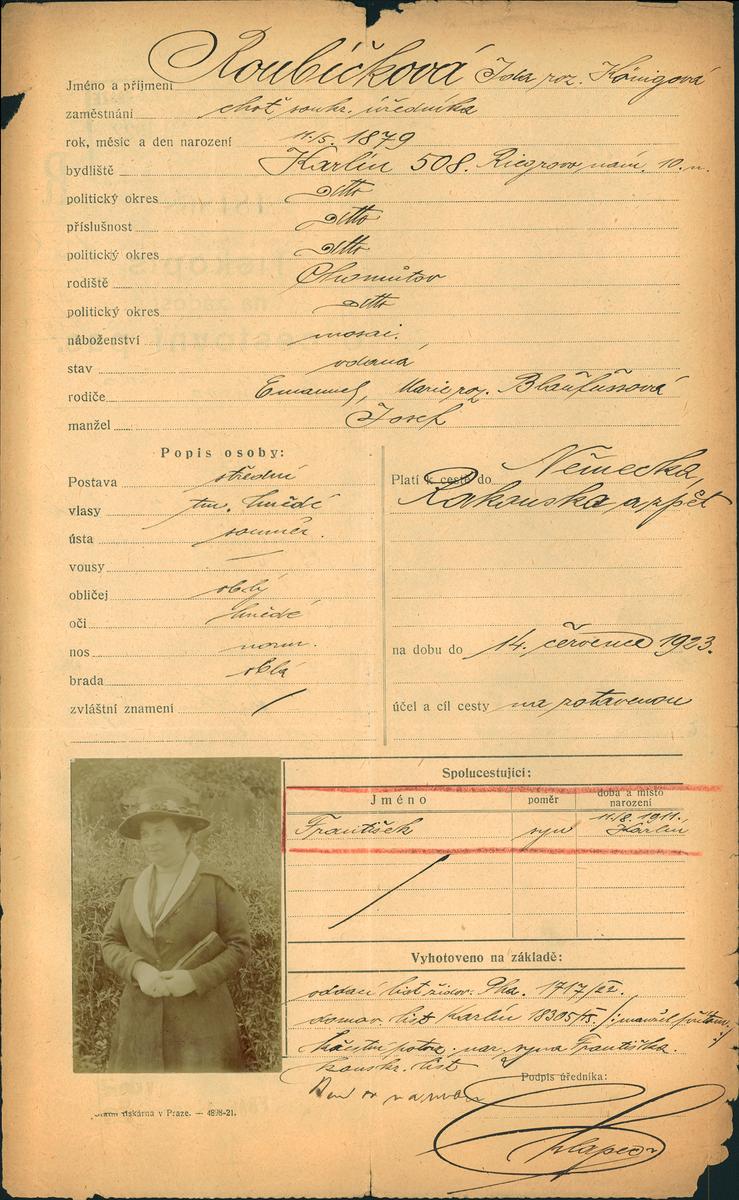 Jméno a příjmení Roubíčková Ida roz. Königová
zaměstnání choť soukr. úředníka
rok, měsíc a den narození 11./5. 1879
bydliště Karlín 508. Riegrovo nám. 10. n.
politický okres ditto
příslušnost ditto
politický okres ditto
rodiště Chomútov
politický okres ditto
náboženství mosai.
stav vdaná
rodiče Emanuel, Marie roz. Blaufussová
manžel Josef
Popis osoby:
Postava střední
vlasy tm. hnědé
ústa souměr.
vousy —
obličej oblý
oči hnědé
nos norm.
brada oblá
zvláštní znamení /
Platí k cestě do Německa,
Rakouska a zpět
na dobu do 14. července 1923.
účel a cíl cesty na zotavenou
Spolucestující:
Jméno poměr doba a místo narození
František syn 11./8. 1911. Karlín
Vyhotoveno na základě:
oddací list židov. Pha. 1717/
domov. list Karlín 18305/
potvr. nar. syna Františka.
list
Podpis úředníka:
tiskárna v Praze. — 4898-21.